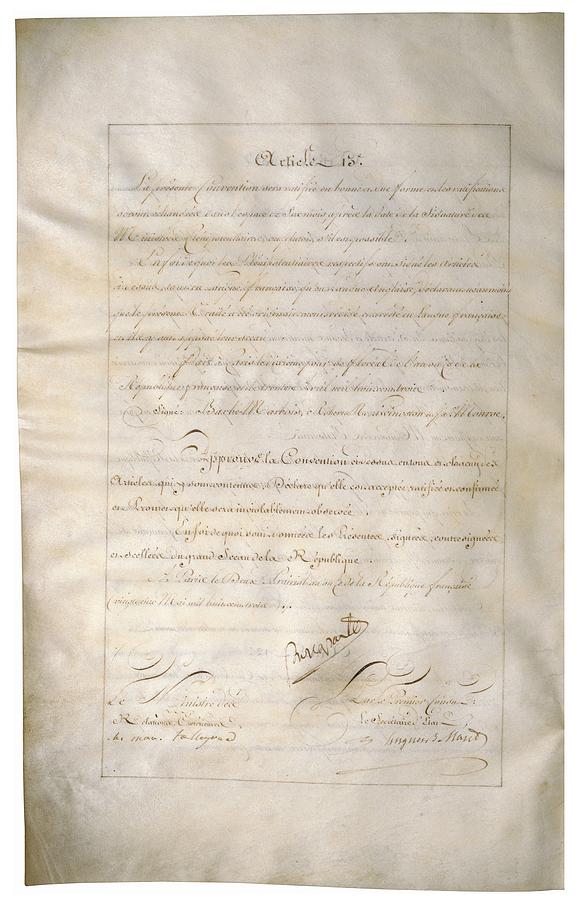 Article 13e.
La présente Convention sera ratifiée en bonne et due forme et les ratifications
seront échangées dans l'espace de Six mois après la date de la Signature des
Ministres Plénipotentiaires, ou plutot, s'il est possible.
En foi de quoi les Plénipotentiaires respectifs ont signé les Articles
ci-dessus, tant en Langue française, qu'en Langue Anglaise, déclarant néanmoins
que le présent Traité a été originairement rédigé et arrêté en Langue française
et ils y ont apposé leur sceau.
Fait à Paris le dixième jour de floréal de l'an onze de la
République française et le trente Avril mil huit cent trois.
Signé: Barbé Marbois, Robt R. Livingston et Jas. Monroe.
Approuve la Convention ci-dessus en tous et chacun des
Articles qui y sont contenus; Déclare qu'elle est acceptée, ratifiée et confirmée
et Promet qu'elle sera inviolablement observée.
En foi de quoi sont données les Présentes, signées, contresignées
et scellées du grand Sceau de la République.
à Paris le Deux Prairial an onze de la République française
(vingt deux Mai mil huit cent trois).
Bonaparte
Le Ministre des
Relations Extérieures
Ch. Mau. Talleyrand
Par le Premier Consul:
le Secrétaire d'Etat
Hugues B. Maret